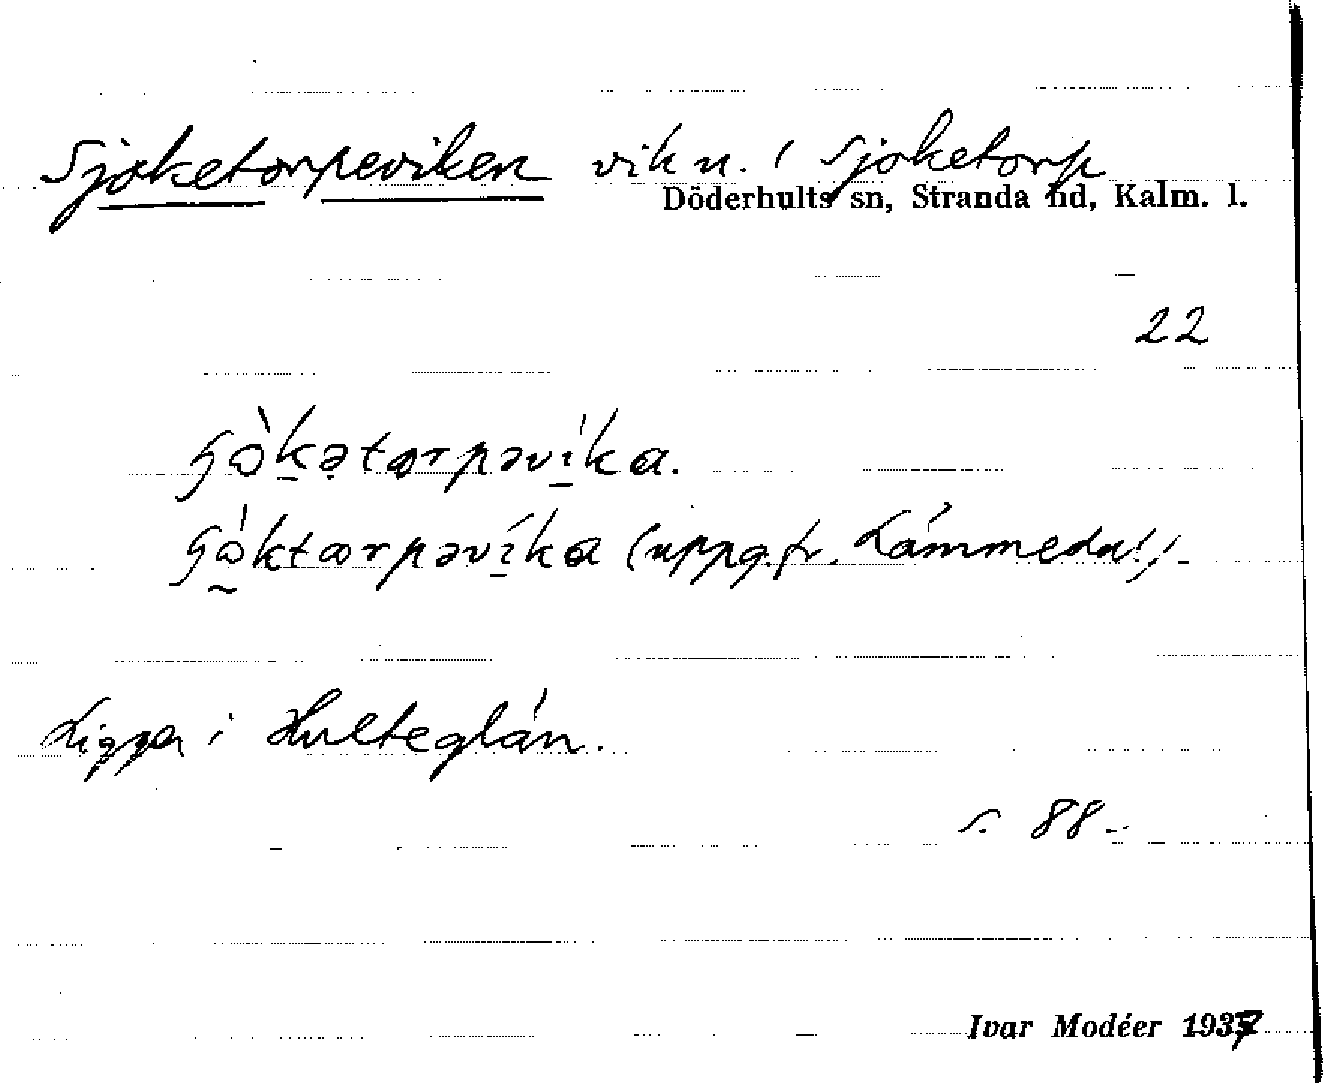 Sjöketorpeviken vik n. i Sjöketorp
Döderhults sn, Stranda hd, Kalm. l.
22
ɧö̀kətorpəvíka.
ɧö́ktorpəvíka (uppg. fr. Lámmedal).
Ligger i Hulteglán.
s. 88.
Ivar Modéer 1937